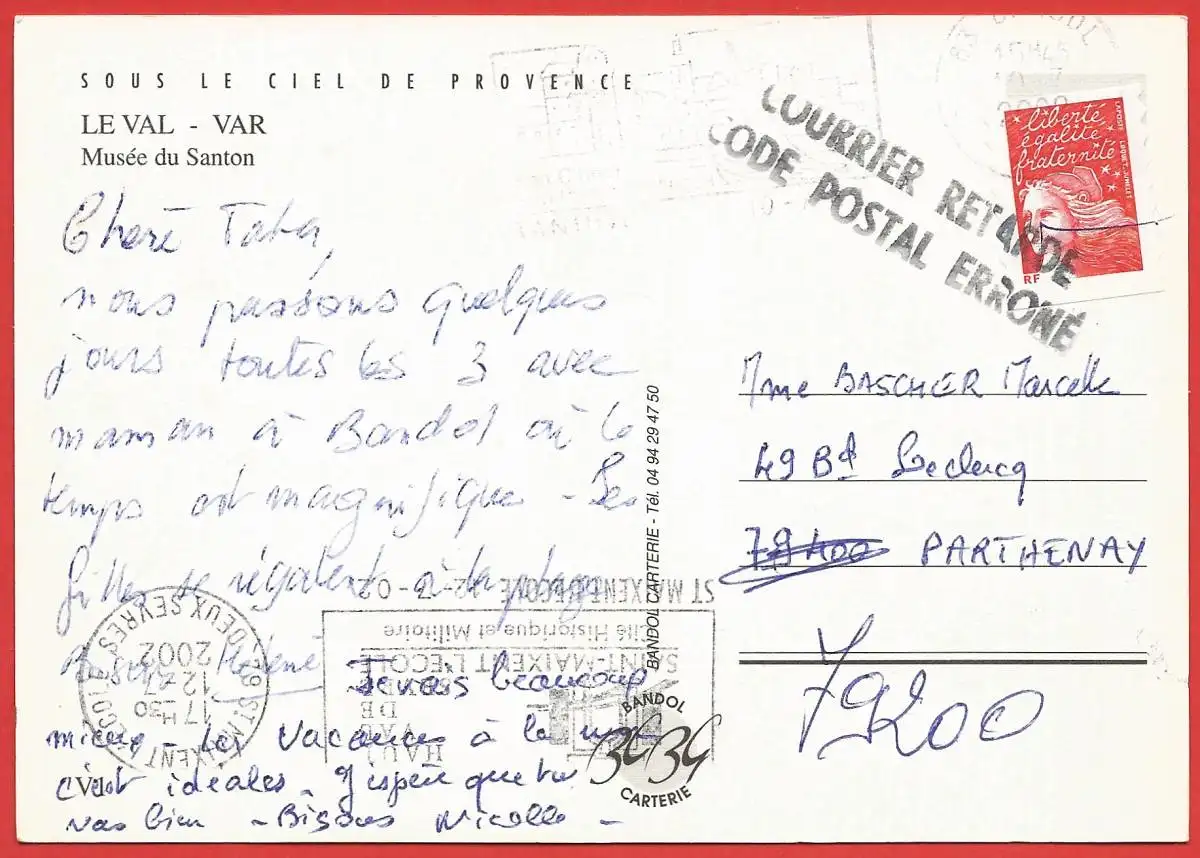 SOUS LE CIEL DE PROVENCE
LE VAL - VAR
Musée du Santon
COURRIER RETARDE
CODE POSTAL ERRONÉ
liberté
égalité
fraternité
LAPOSTE LUQUET.JUMELET
RF
Chère Tata,
nous passons quelques
jours toutes les 3 avec
maman à Bandol où le
temps est magnifique - Les
filles se régalent à la plage
Bisous Hélène
Je vais beaucoup
mieux - Les vacances à la mer
c'est idéales. J'espère que tu
vas bien - Bisous Nicolle -
Mme BASCHER Marcelle
49 Bd Leclercq
79400 PARTHENAY
79200
BANDOL CARTERIE - Tél. 04 94 29 47 50
BANDOL
CARTERIE
ST MAIXENT L'ECOLE 12-7-02
Cité Historique et Militaire
SAINT-MAIXENT L'ECOLE
HAUT
VAL
DE
SEVRE
79 ST MAIXENT L'ECOLE DEUX SEVRES
17H30
12-7
2002